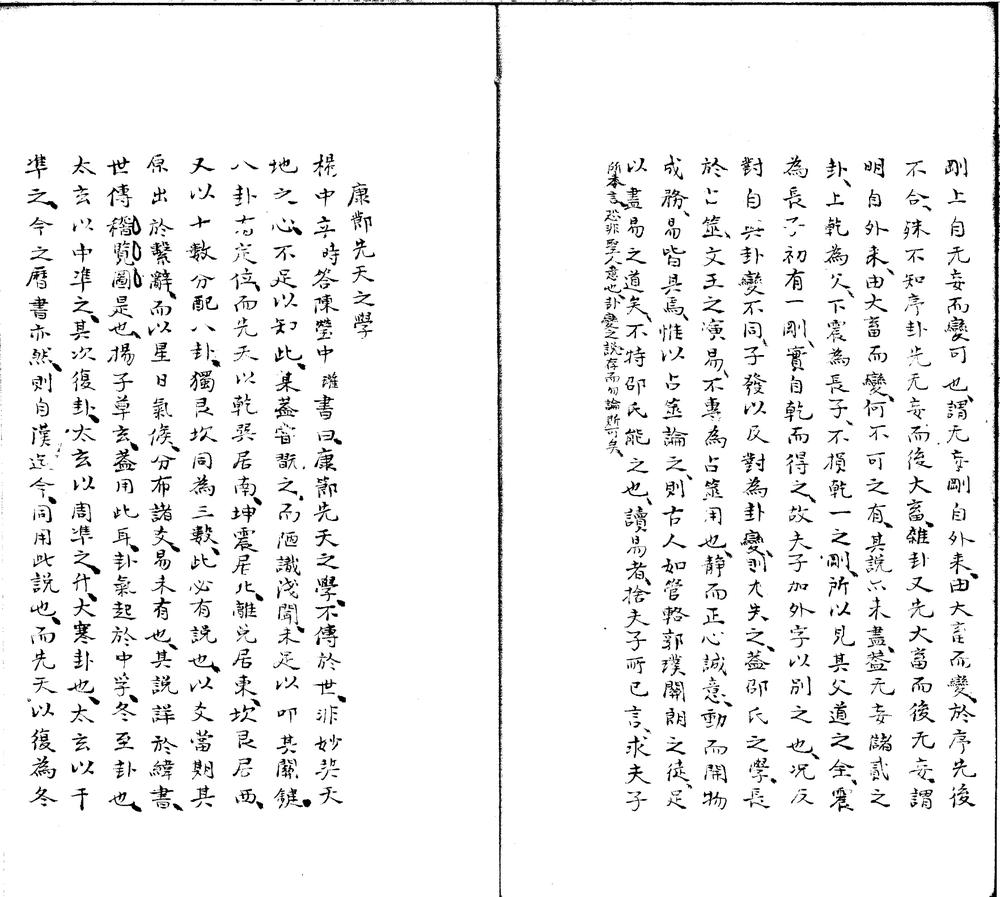 剛上自无妄而變可也謂无妄剛自外来由大畜而變於序先後
不合殊不知序卦先无妄而後大畜雜卦又先大畜而後无妄謂
明自外来由大畜而變何不可之有其說亦未盡蓋无妄儲貳之
卦上乾為父下震為長子不損乾一之剛所以見其父道之全震
為長子初有一剛實自乾而得之故夫子加外字以別之也况反
對自與卦變不同子發以反對為卦變則尤失之蓋邵氏之學長
於占筮文王之演易不專為占筮用也静而正心誠意動而開物
成務易皆具焉惟以占筮論之則古人如管輅郭璞關朗之徒足
以盡易之道矣不特邵氏能之也讀易者捨夫子所已言求夫子
所本言恐非聖人意也卦變之說存而勿論斯可矣
康節先天之學
楊中立時答陳瑩中瓘書曰康節先天之學不傳於世非妙契天
地之心不足以知此某蓋嘗翫之而陋識淺聞未足以叩其關鍵
八卦有定位而先天以乾巽居南坤震居北離兌居東坎艮居西
又以十數分配八卦獨艮坎同為三數此必有説也以爻當期其
原出於繫辭而以星日氣候分布諸爻易未有也其説詳於緯書
世傳稽覽圖是也揚子草玄蓋用此耳卦氣起於中孚冬至卦也
太玄以中凖之其次復卦太玄以周凖之升大寒卦也太玄以干
凖之今之曆書亦然則自漢迄今同用此説也而先天以復為冬